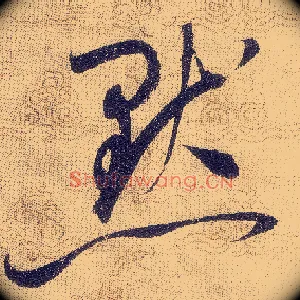 默
Shufawang.CN